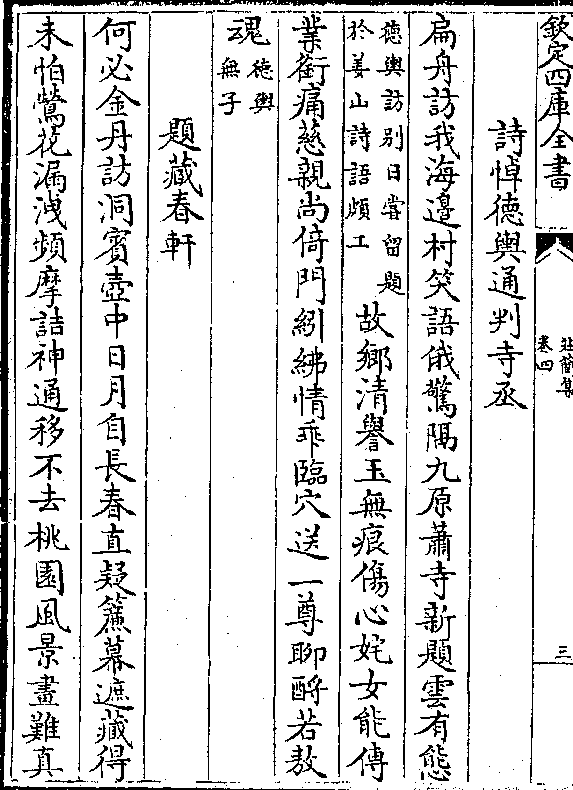 欽定四庫全書
莊簡集
卷四
三
詩悼德輿通判寺丞
扁舟訪我海邊村笑語俄驚隔九原蕭寺新題雲有態
德輿訪别日嘗留題
於姜山詩語頗工
故鄉清譽玉無痕傷心姹女能傳
業銜痛慈親尚倚門紖紼情乖臨穴送一尊聊酹若敖
魂
德輿
無子
題藏春軒
何必金丹訪洞賓壺中日月自長春直疑簾幕遮藏得
未怕鶯花漏洩頻摩詰神通移不去桃園風景畫難真